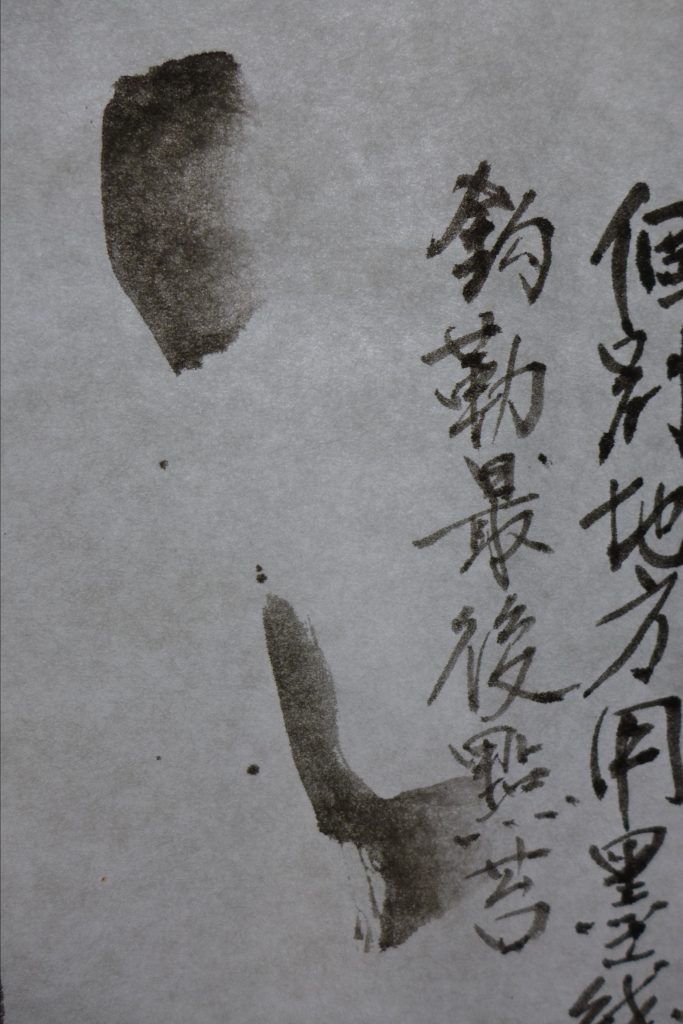 個別地方用墨线
鈎勒最後點苔